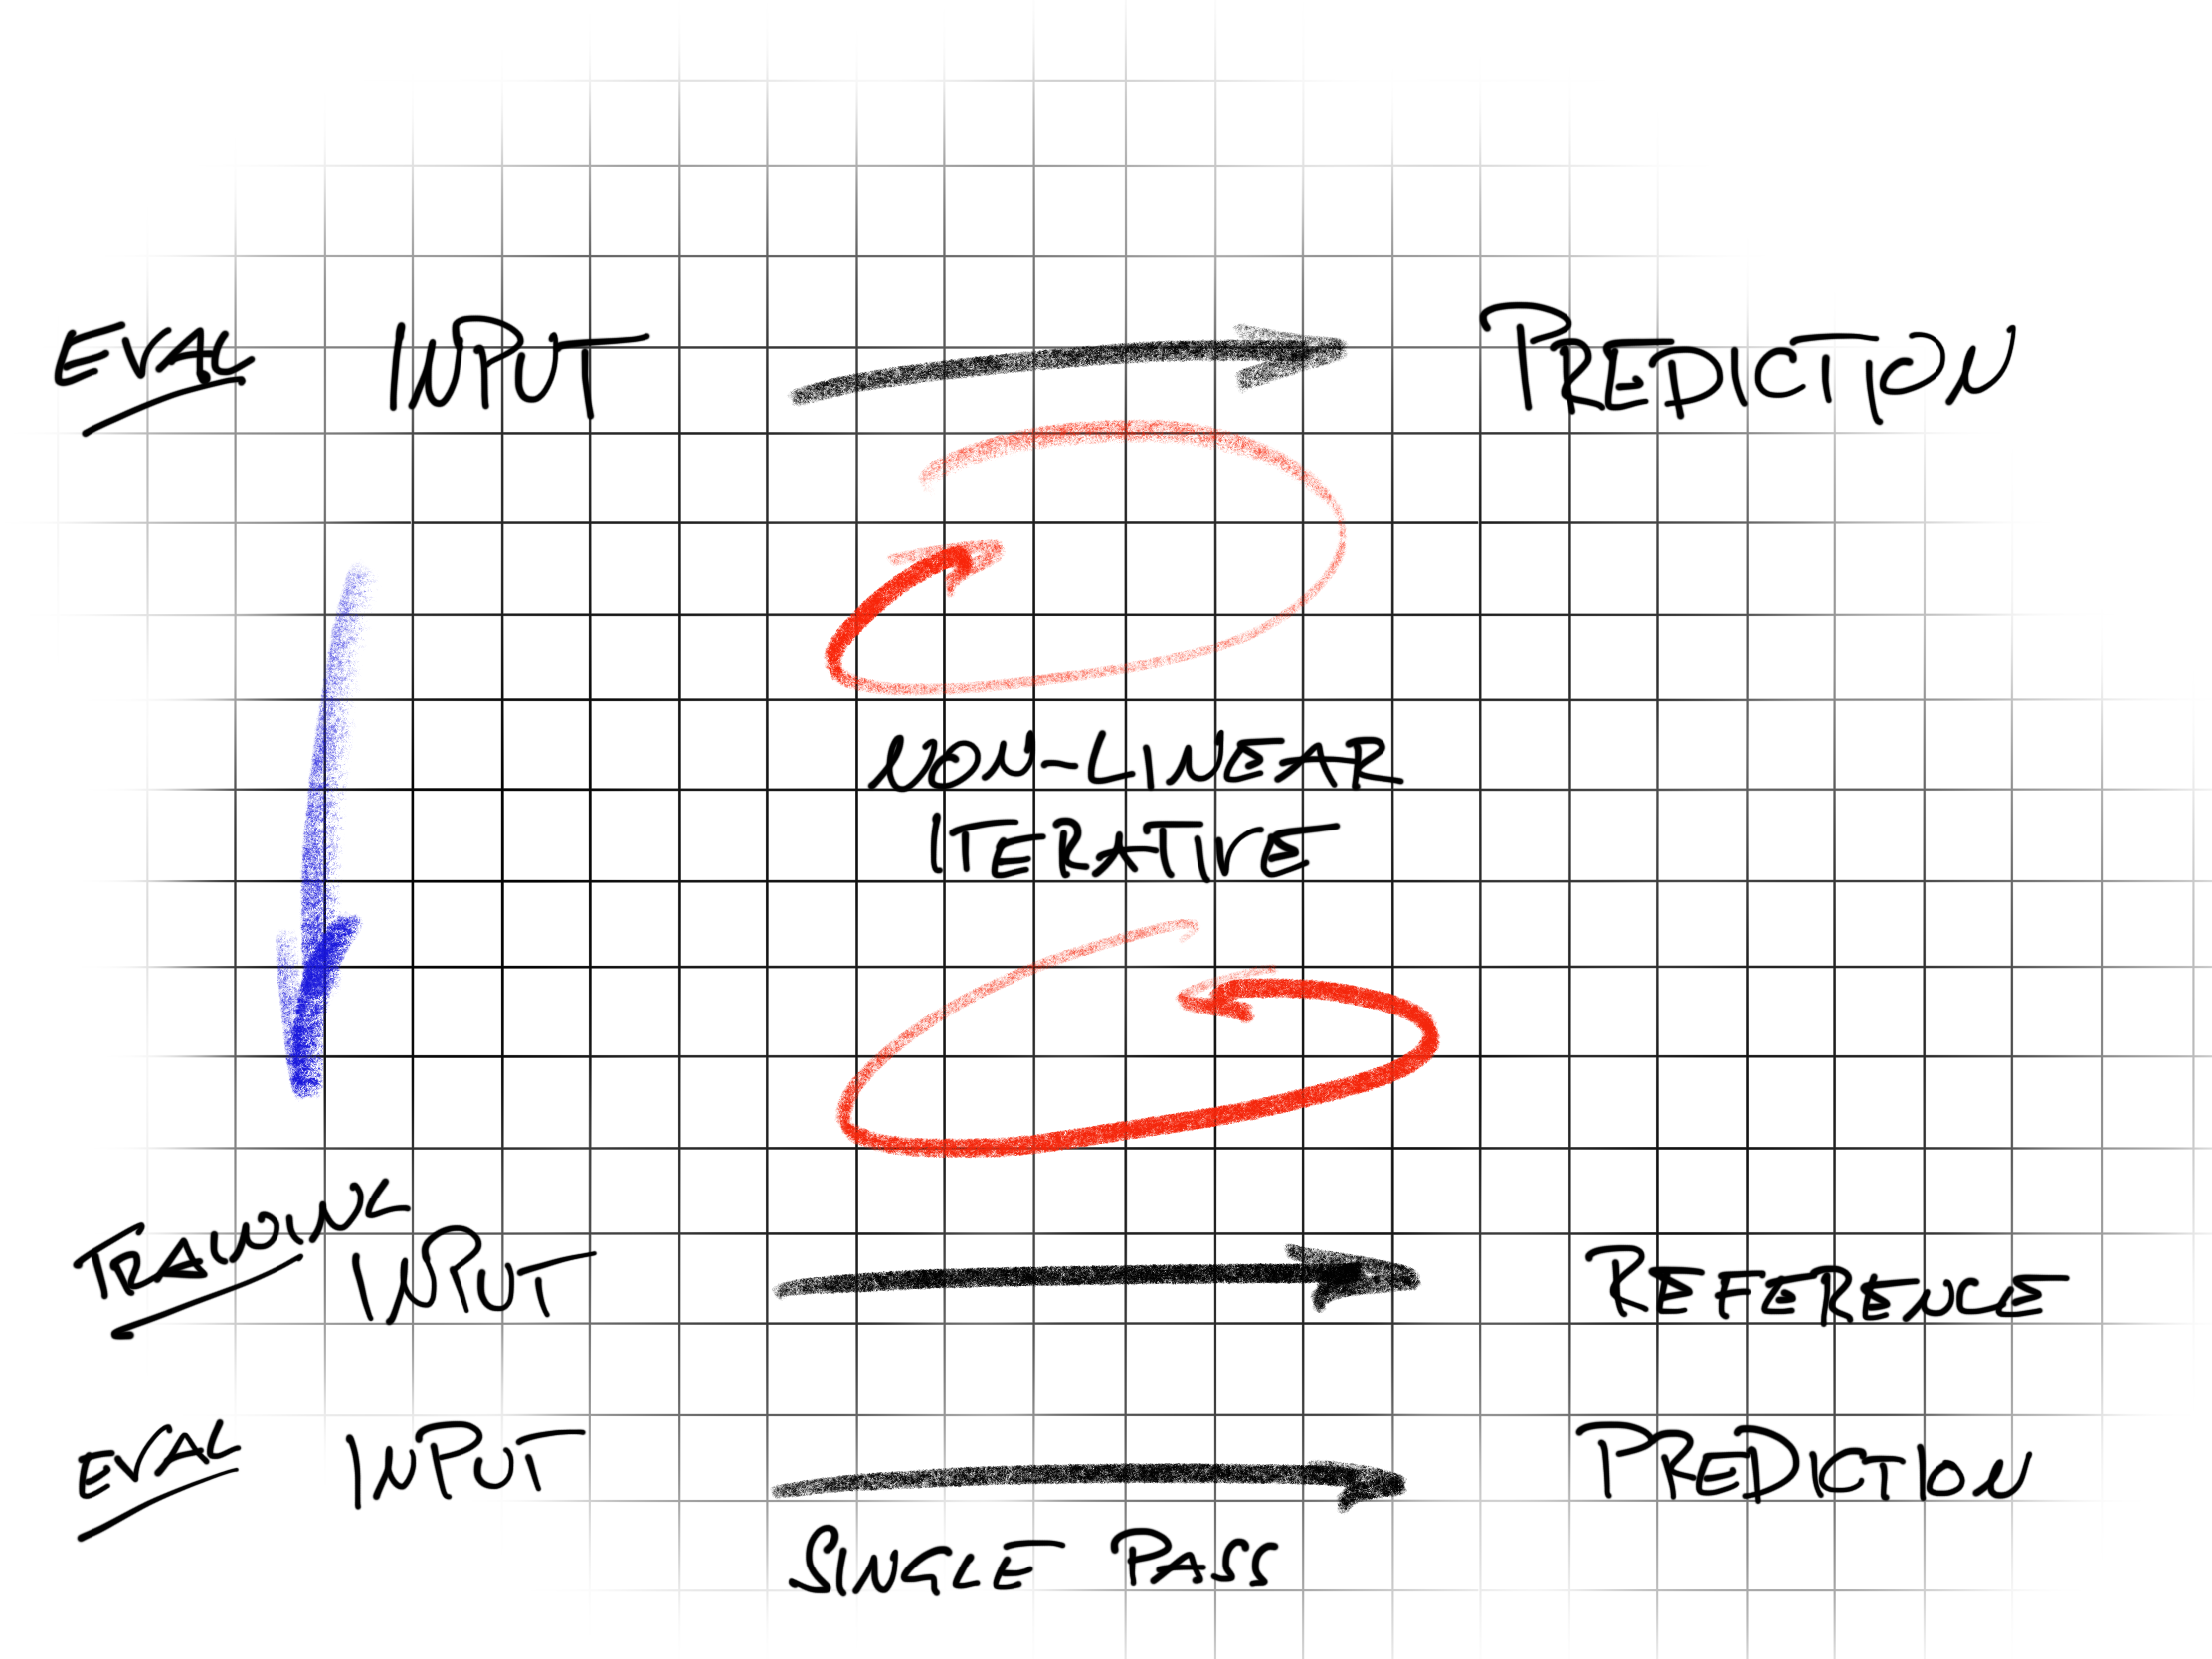 EVAL INPUT PREDICTION
NON-LINEAR
ITERATIVE
TRAINING INPUT REFERENCE
EVAL INPUT PREDICTION
SINGLE PASS